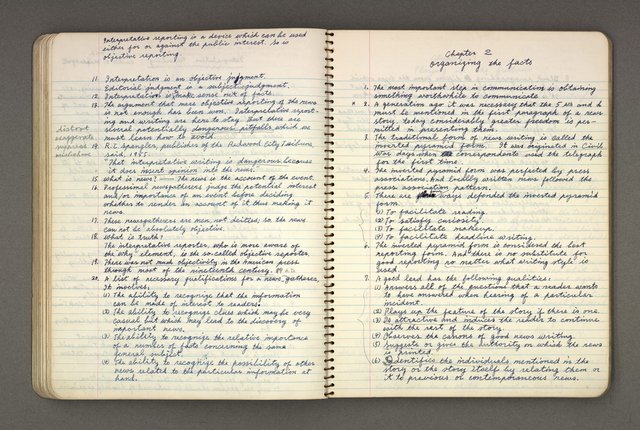 Interpretative reporting is a device which can be used
either for or against the public interest. So is
objective reporting
11. Interpretation is an objective judgment.
Editorial judgment is a subjective judgment.
12. Interpretation is make sense out of facts.
13. The argument that mere objective reporting of the news
is not enough has been won. Interpretative report-
ing and writing are here to stay. But there are
several potentially dangerous pitfalls which we
must learn how to avoid.
distort
exaggerate
suppress
mislabel
14. R.L. Spangler, publisher of the Redwood City Tribune,
said, 1955.
"That interpretative writing is dangerous because
it does insert opinion into the news."
15. What is news? — The news is the account of the event.
16. Professional newsgatherers judge the potential interest
and/or importance of an event before deciding
whether to render an account of it thus making it
news.
17. These newsgatherers are men, not deities, so the news
can not be absolutely objective.
18. What is truth?
The interpretative reporter, who is more aware of
the "Why" element, is the so-called objective reporter.
19. There was not much objectivity in the American press
through most of the nineteenth century.
20. A list of necessary qualifications for a news gatherer,
It involves:
(1) The ability to recognize that the information
can be made of interest to readers.
(2) The ability to recognize clues which may be very
casual but which may lead to the discovery of
important news.
(3) The ability to recognize the relative importance
of a number of facts concerning the same
general subject.
(4) The ability to recognize the possibility of other
news related to the particular information at
hand.
Chapter 2
Organizing the facts
1. The most important step in communication is obtaining
something worthwhile to communicate.
2. A generation ago it was necessary that the 5 Ws and h
must be mentioned in the first paragraph of a news
story, today considerably greater freedom is per-
mitted in presenting them.
3. The traditional form of news writing is called the
inverted pyramid form. It was originated in Civil
War days when correspondents used the telegraph
for the first time.
4. The inverted pyramid form was perfected by press
associations. And locally written news followed the
press association pattern.
5. There are ways defended the inverted pyramid
form.
(1) To facilitate reading.
(2) To satisfy curiosity.
(3) To facilitate makeup.
(4) To facilitate headline writing.
6. The inverted pyramid form is considered the best
reporting form. And there is no substitute for
good reporting no matter what writing style is
used.
7. A good lead has the following qualities:
(1) Answers all of the questions that a reader wants
to have answered when hearing of a particular
incident.
(2) Plays up the feature of the story if there is one.
(3) Is attractive and induces the reader to continue
with the rest of the story.
(4) Observes the canons of good news writing.
(5) Suggests or gives the authority on which the news
is printed.
(6) Identifies the individuals mentioned in the
story or the story itself by relating them or
it to previous or contemporaneous news.